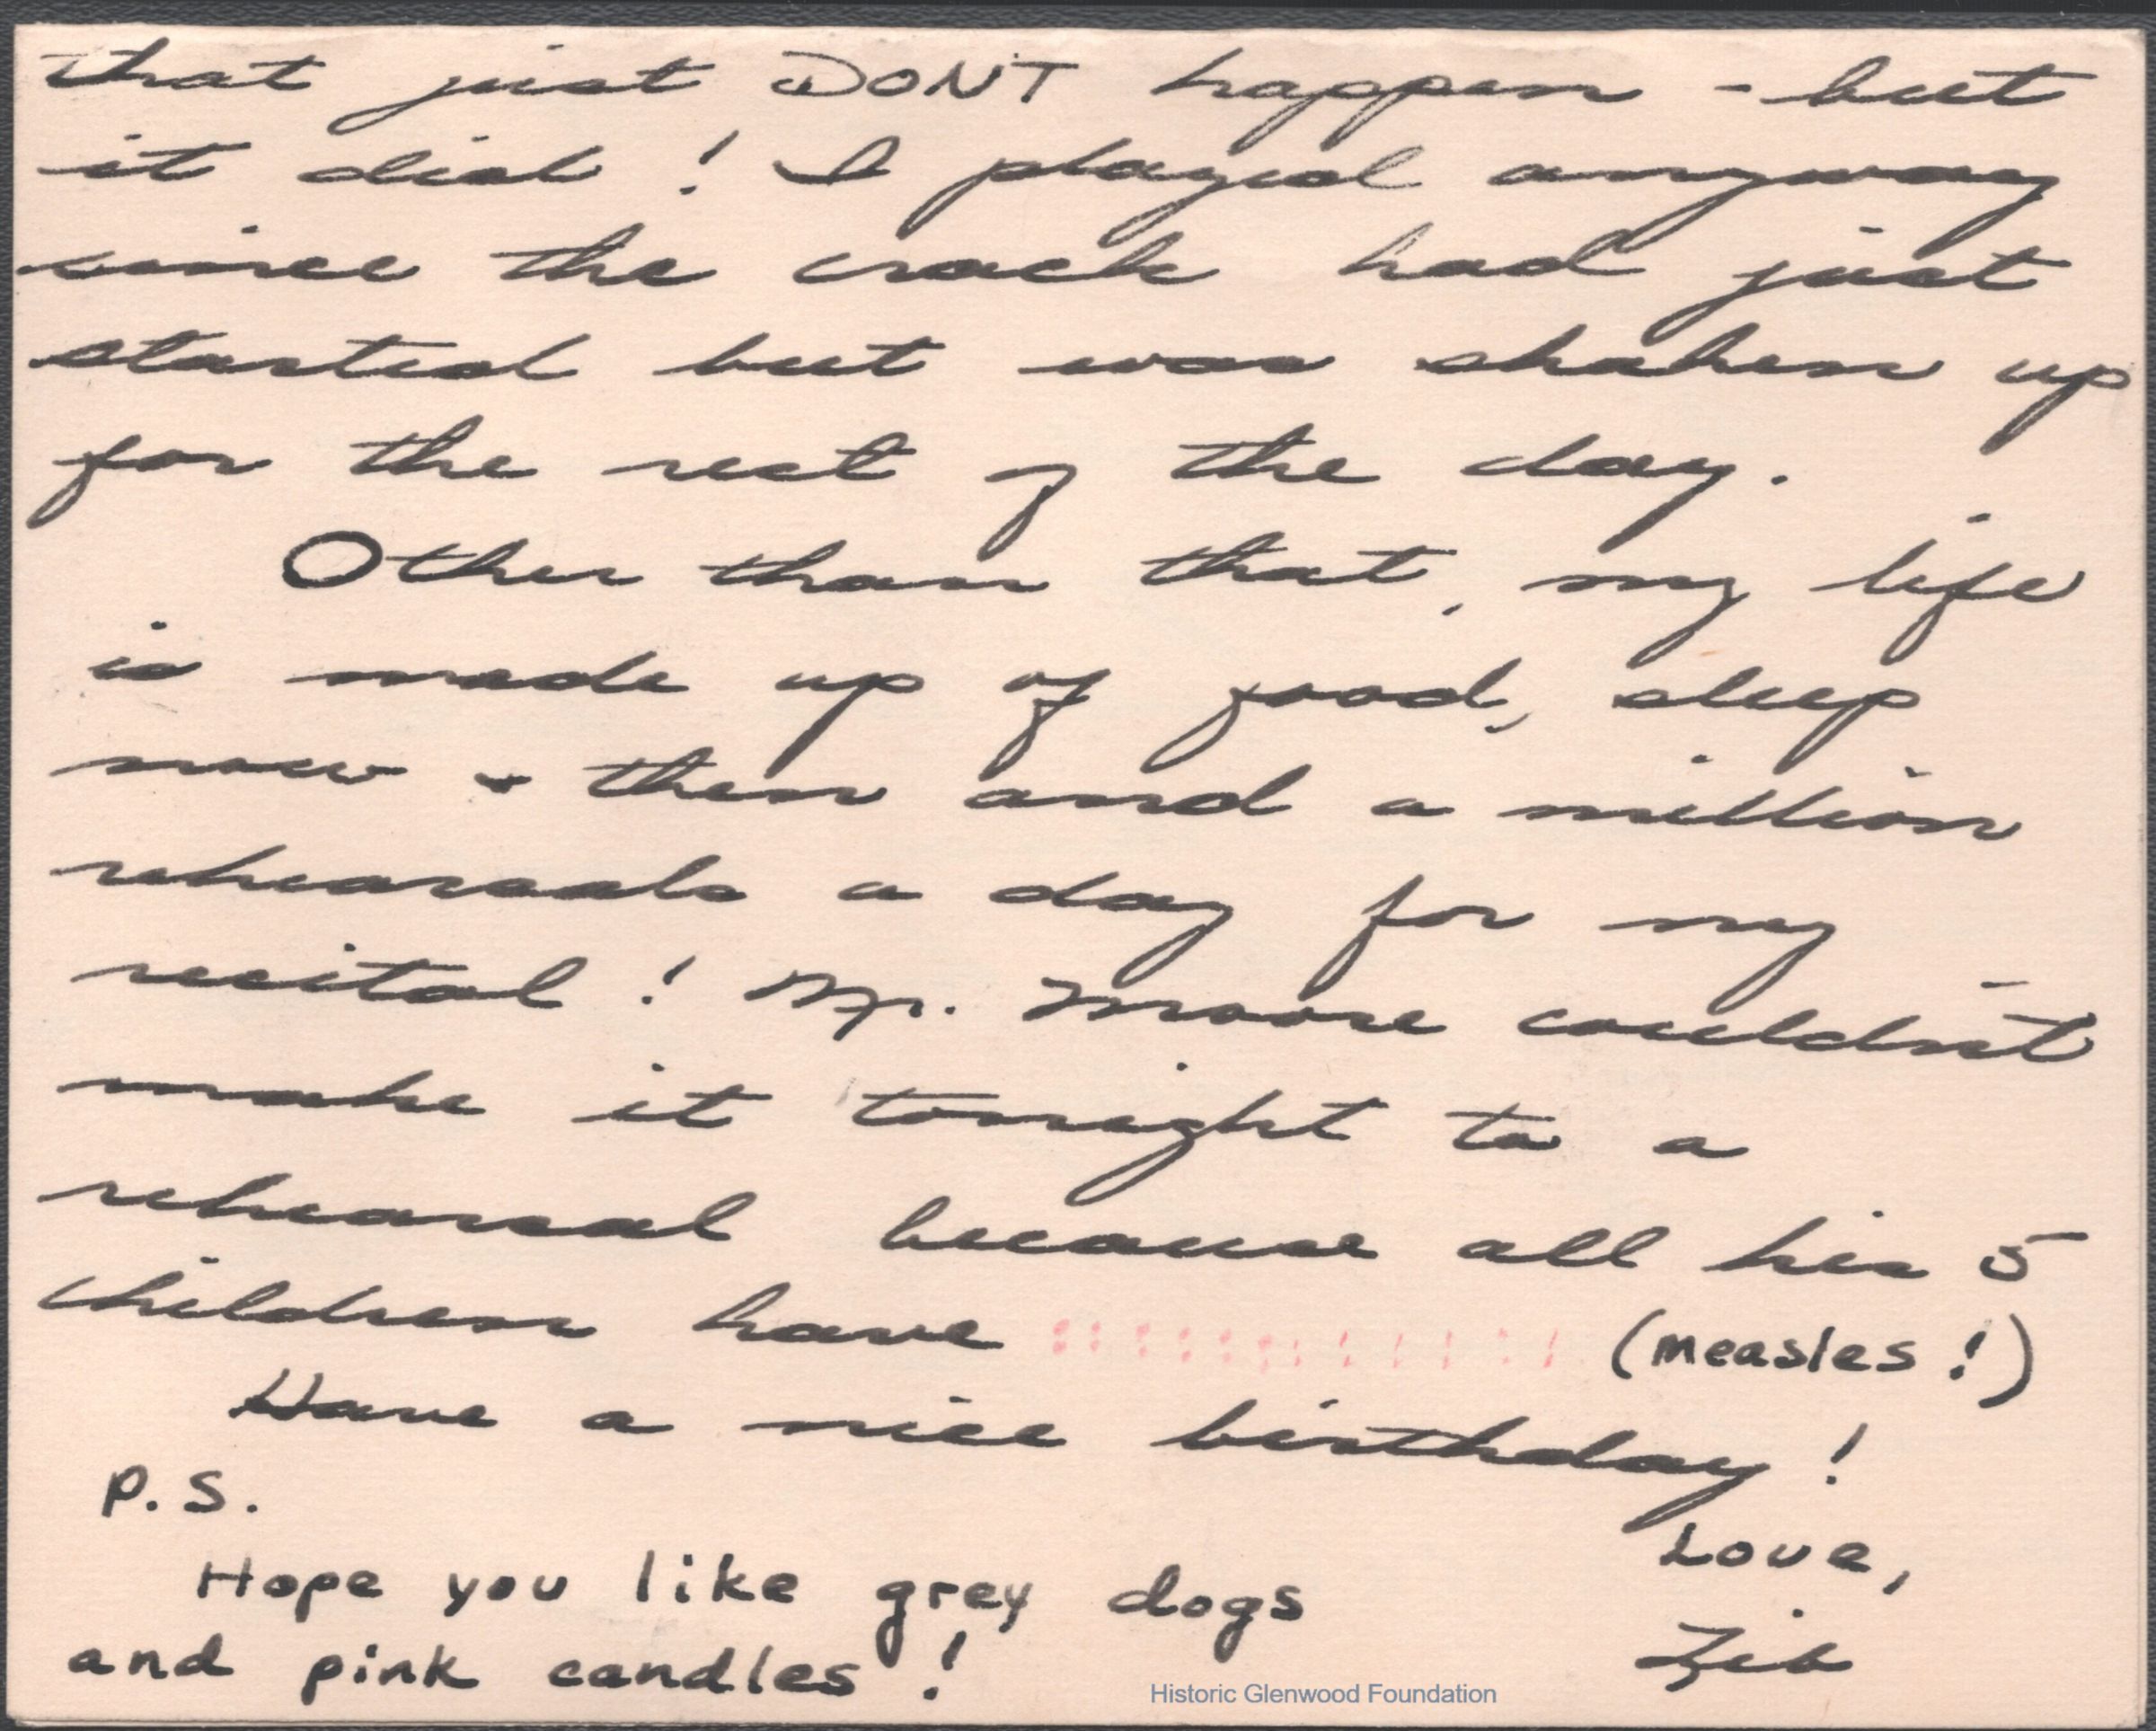 that just DON'T happen - but
it did! I played anyway
since the crack had just
started but was shaken up
for the rest of the day.
Other than that, my life
is made up of food, sleep
now & then and a million
rehearsals a day for my
recital! Mr. Moore couldn't
make it tonight to a
rehearsal because all his 5
children have (measles!)
Have a nice birthday!
P.S.
Love,
Hope you like grey dogs
and pink candles!
Zib
Historic Glenwood Foundation